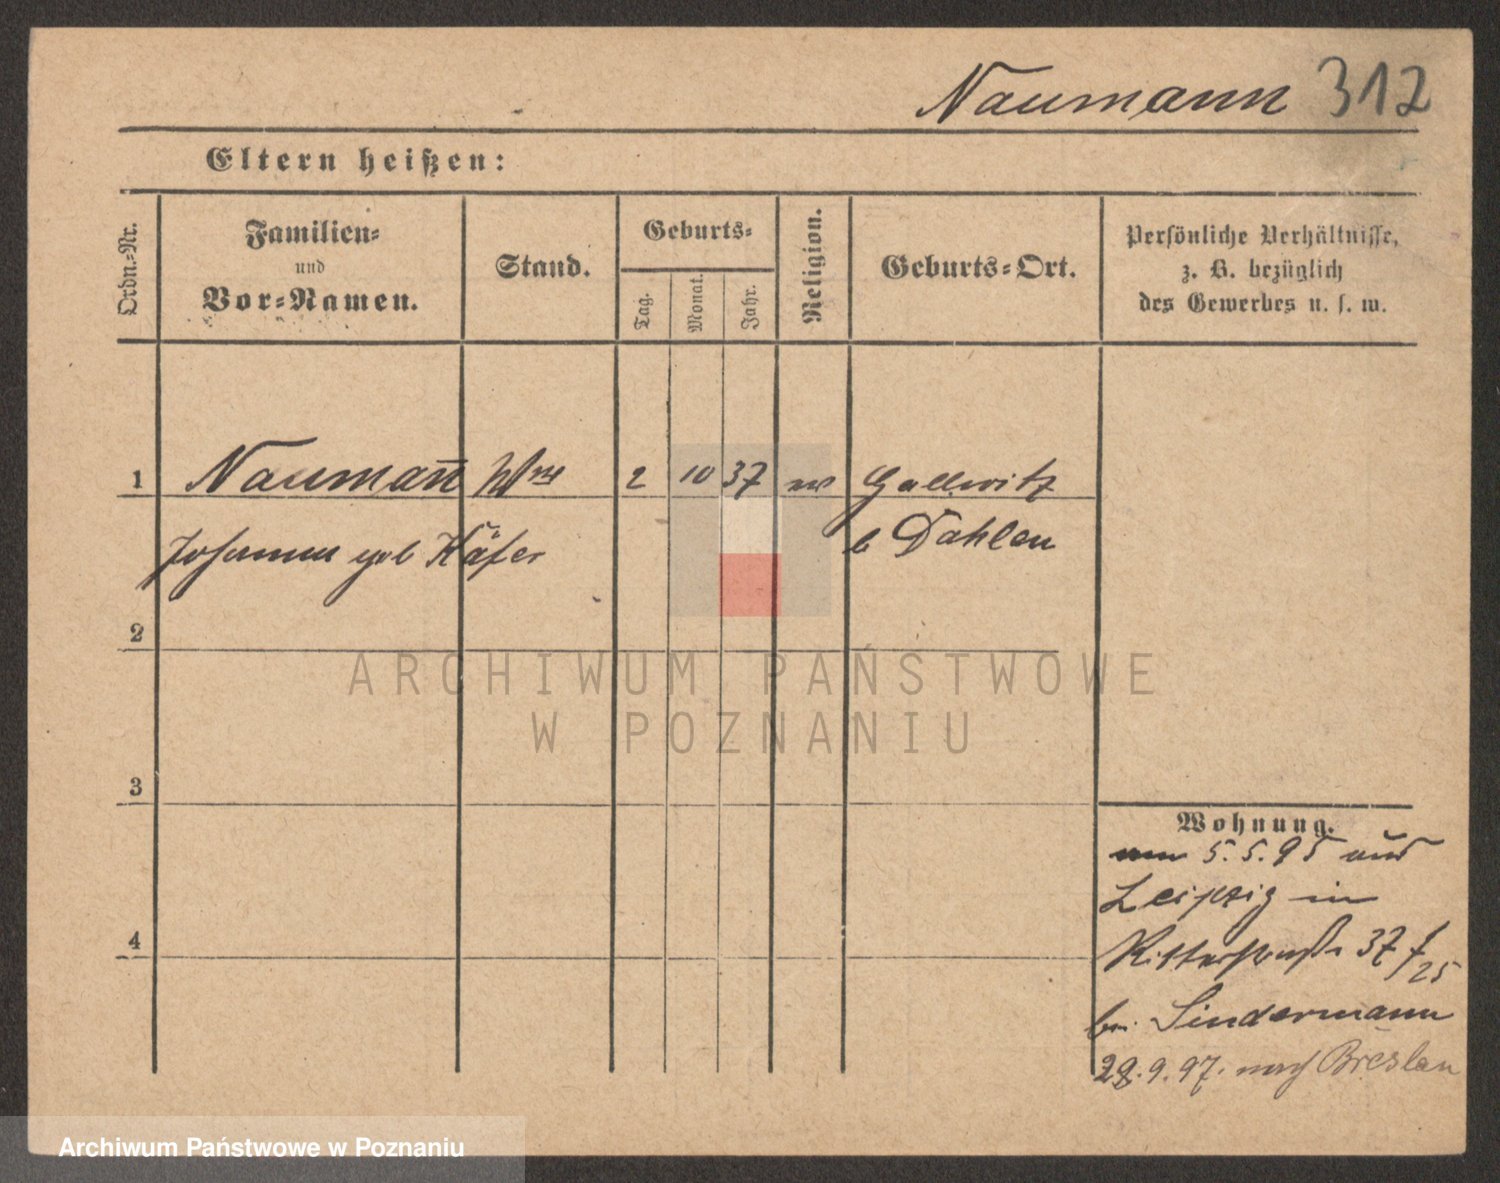 Naumann 312
Eltern heißen:
Ordn.-Nr.
Familien-
und
Vor-Namen.
Stand.
Geburts-
Tag.
Monat.
Jahr.
Religion.
Geburts-Ort.
Persönliche Verhältnisse,
z. B. bezüglich
des Gewerbes u. s. w.
1 Naumann̅ Wwe 2 10 37 ev Gallwitz
Johanna geb Käfer b Dahlen
2
ARCHIWUM PAŃSTWOWE
W POZNANIU
3
Wohnung.
am 5.5.95 aus
Leipzig in
4
Ritterstraße 37 /25
bei Lindermann
28.9.97. nach Breslau
Archiwum Państwowe w Poznaniu